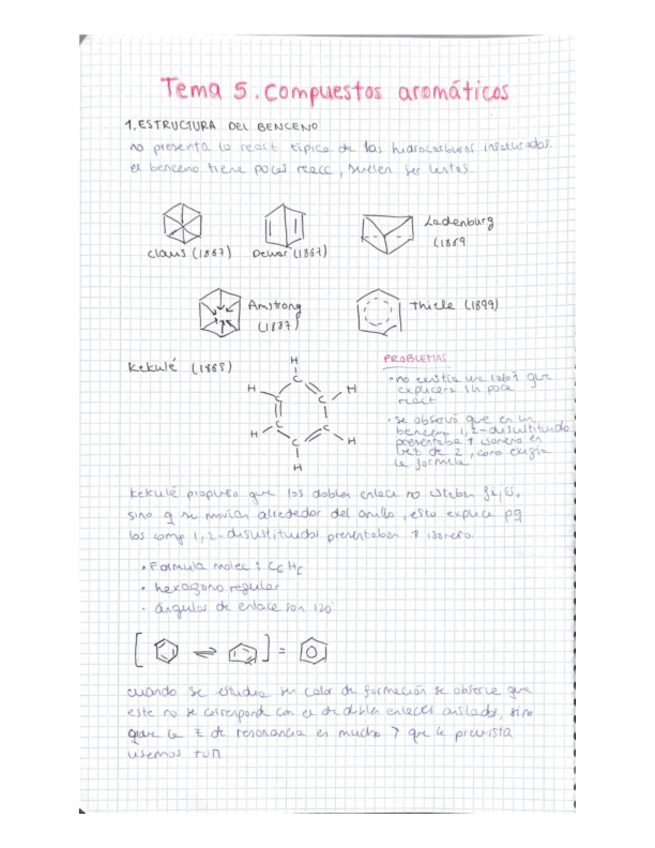 Tema 5. Compuestos aromáticos
1. ESTRUCTURA DEL BENCENO
no presenta la react típica de los hidrocarburos insaturados.
el benceno tiene pocas reacc, suelen ser lentas.
Claus (1867)
Dewar (1867)
Ladenburg
(1869
Amstrong
(1887)
Thiele (1899)
Kekulé (1865)
H
C
H
C
C
H
H
C
C
H
C
H
PROBLEMAS
• no existía una razón que
explicara su poca
react
• se observó que en un
benceno 1,2-disustituido
presentaba 1 isómero en
vez de 2, como exigía
la fórmula
Kekulé propuso que los dobles enlace no estaban fijos,
sino q se movían alrededor del anillo, esto explica pq
los comp 1,2-disustituidos presentaban 1 isómero.
• Formula molec : C6H6
• hexágono regular
• ángulos de enlace son 120°
[ ⇌ ] =
cuando se estudia su calor de formación se observa que
este no se corresponde con el de dobles enlaces aislados, sino
que la E de resonancia es mucho > que la prevista
usemos